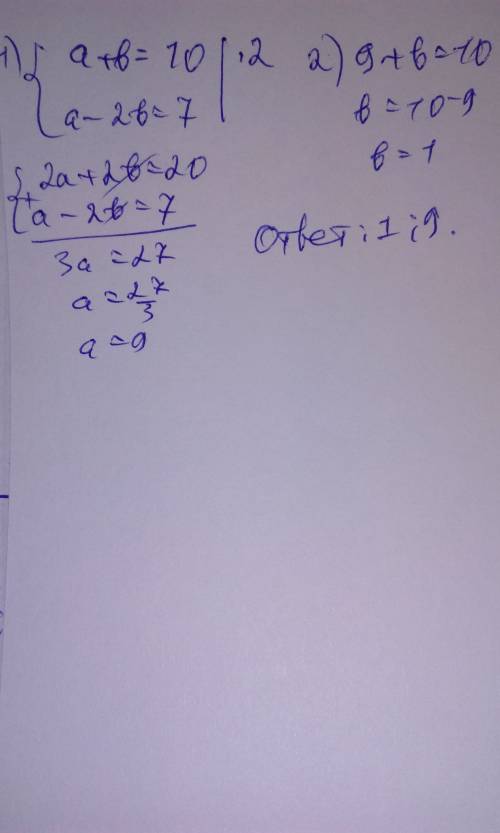 1) { a+b=10 | ·2
a-2b=7
{ 2a+2b=20
+ a-2b=7
3a=27
a=27/3
a=9
2) 9+b=10
b=10-9
b=1
Ответ: 1;9.